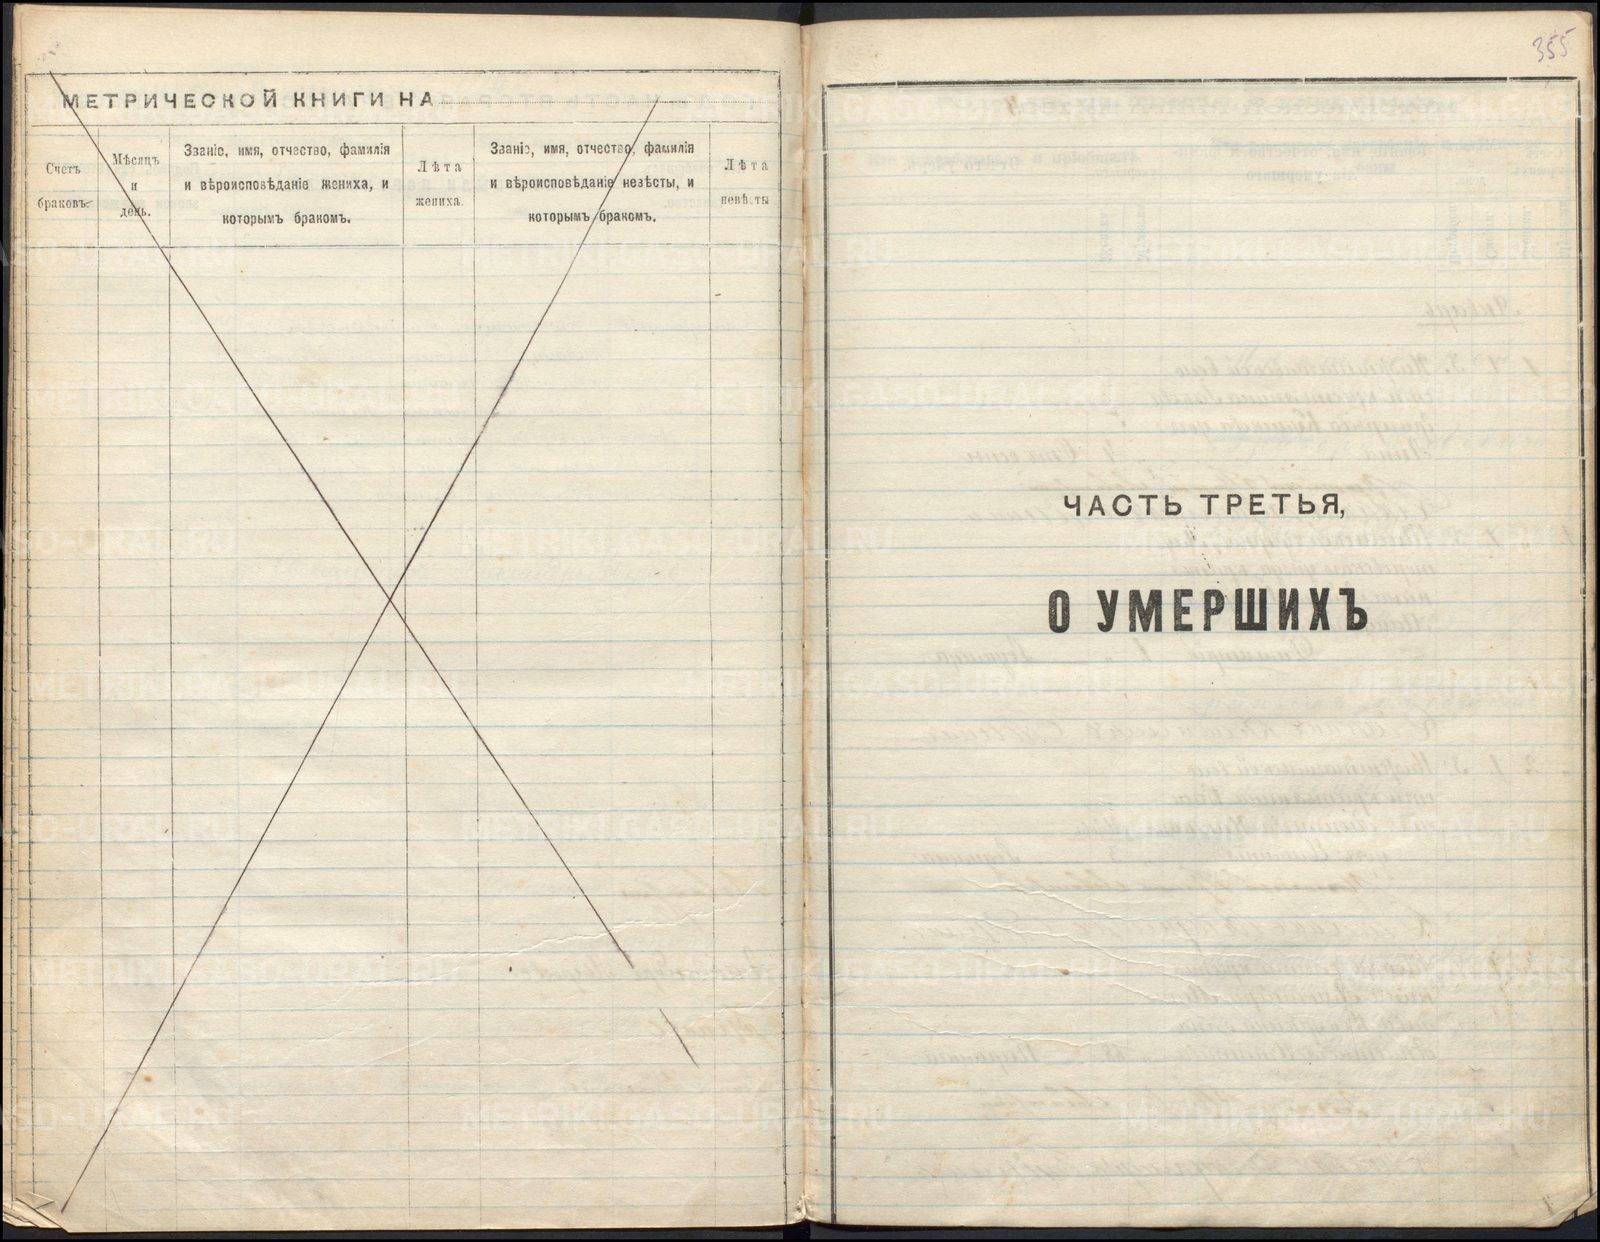 МЕТРИЧЕСКОЙ КНИГИ НА
Счетъ
браковъ.
Мѣсяцъ
и
день.
Званіе, имя, отчество, фамилія
и вѣроисповѣданіе жениха, и
которымъ бракомъ.
Лѣта
жениха.
Званіе, имя, отчество, фамилія
и вѣроисповѣданіе невѣсты, и
которымъ бракомъ.
Лѣта
невѣсты
355
ЧАСТЬ ТРЕТЬЯ,
О УМЕРШИХЪ
METRIKI.GASO-URAL.RU